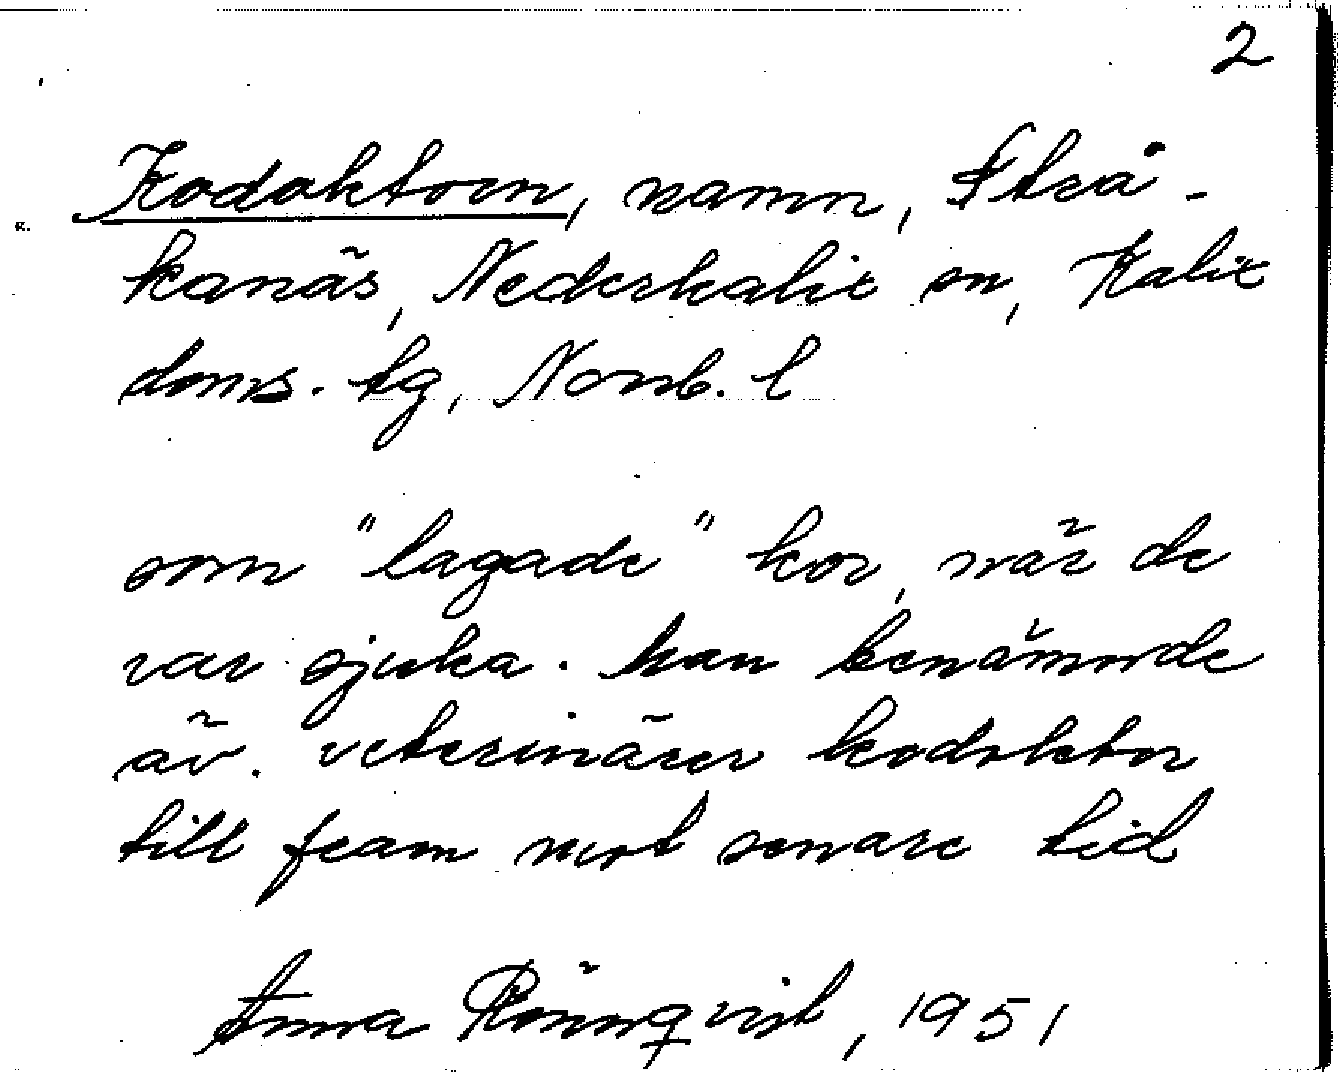 2
Kodoktorn, namn, Strå-
kanäs, Nederkalix sn, Kalix
doms. tg, Norrb. l
som "lagade" kor, när de
var sjuka. Man benämnde
äv. veterinärer kodoktor
till fram mot senare tid
Anna Rönnqvist, 1951